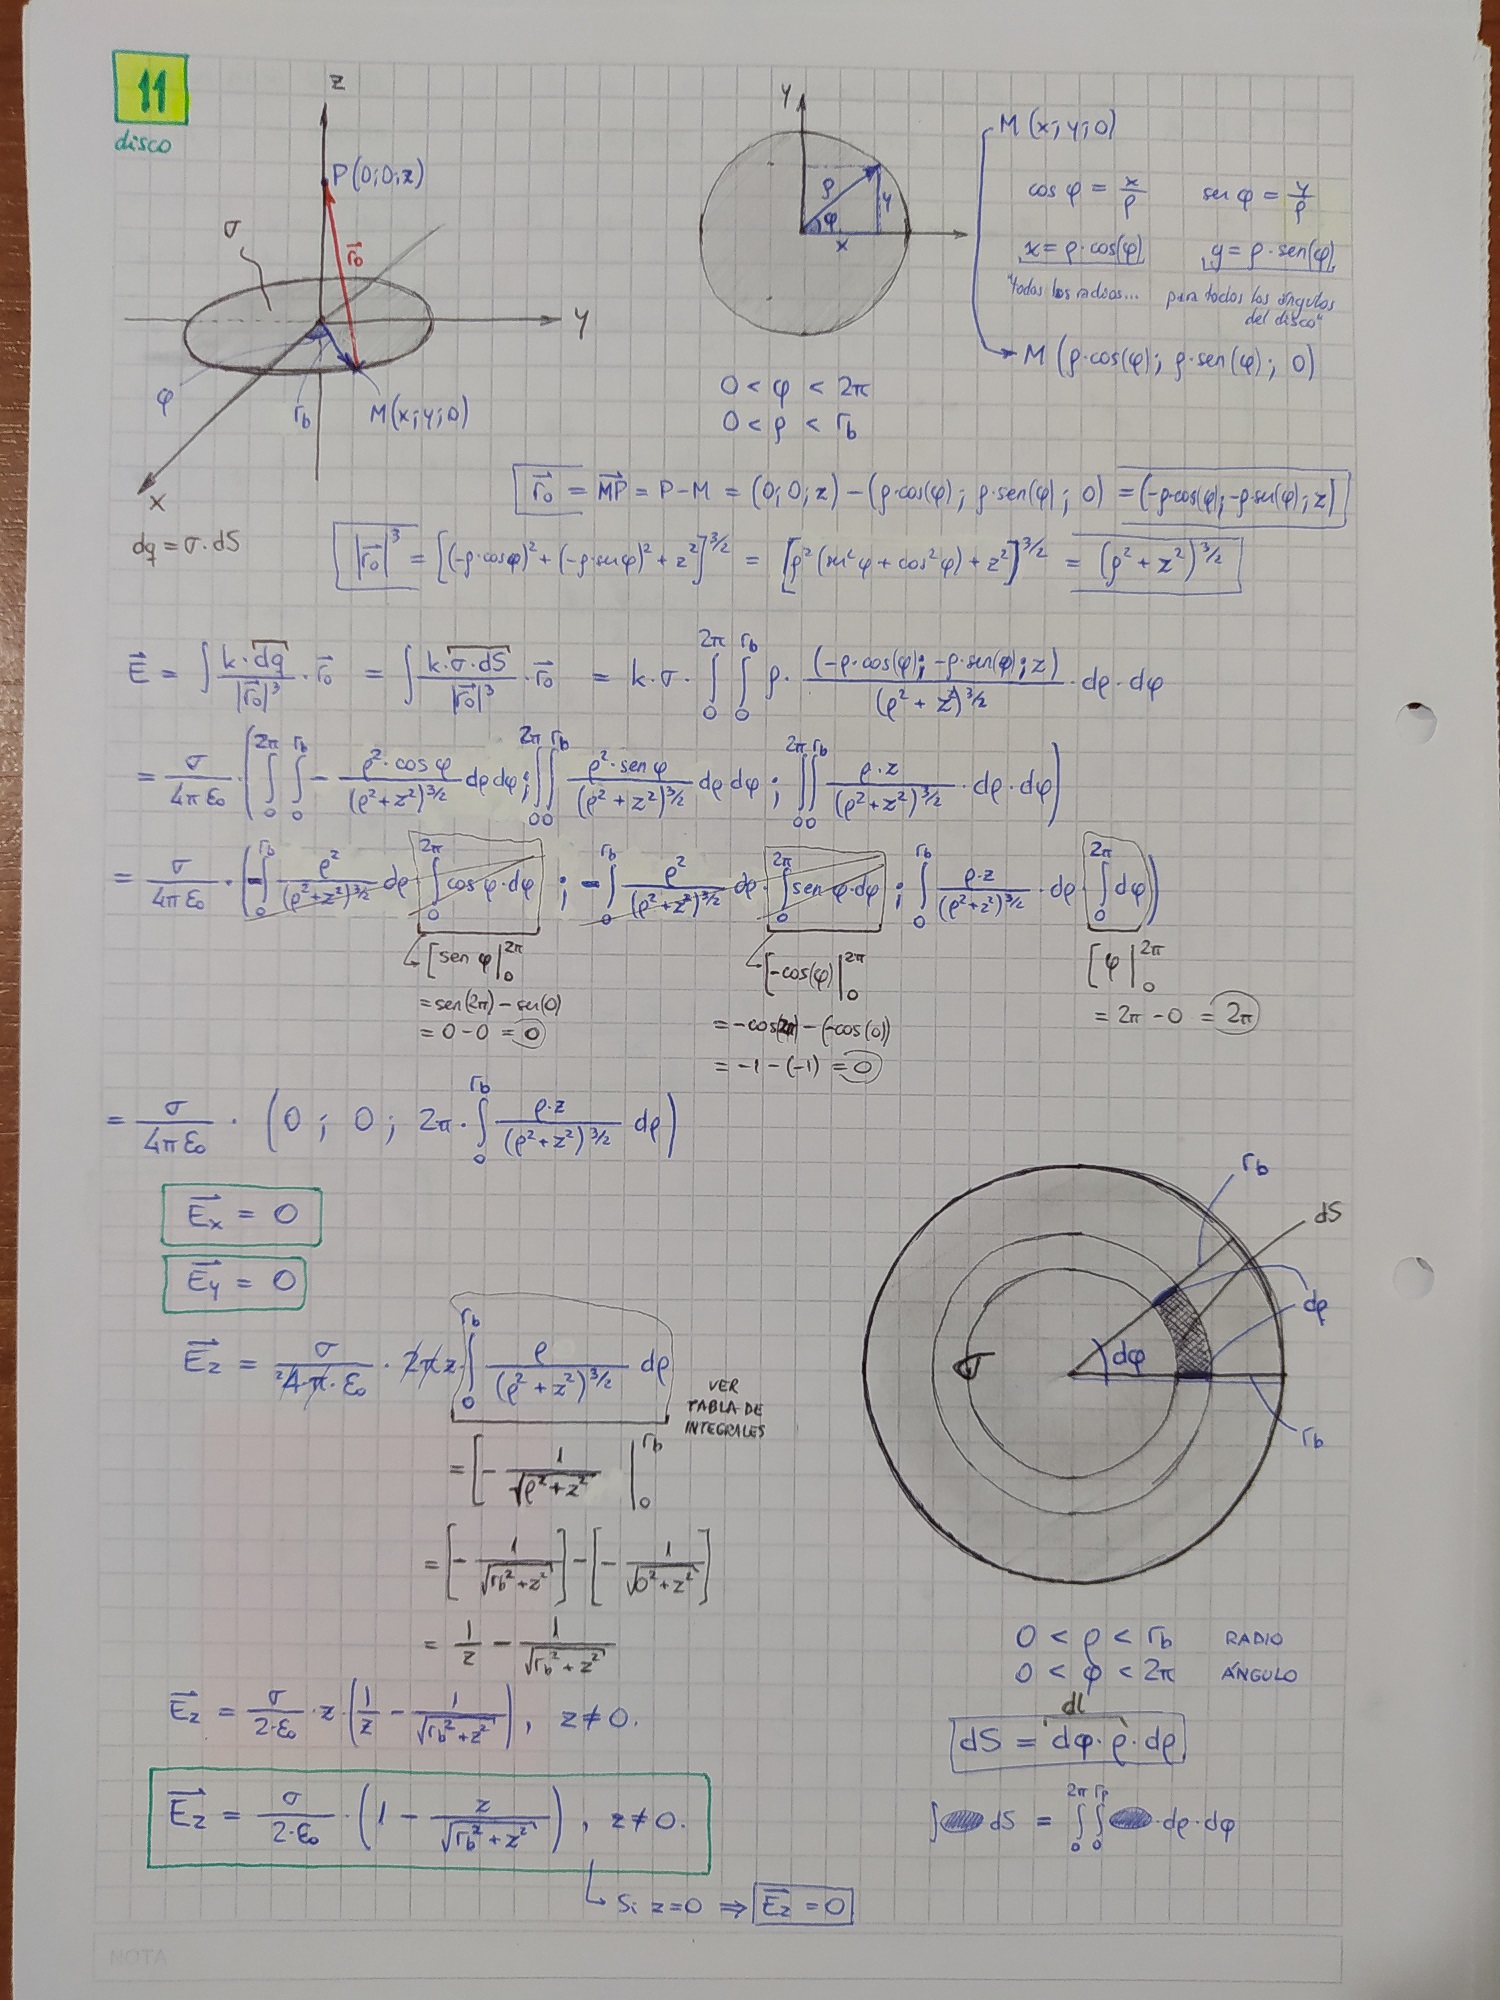 11
disco
z
P(0;0;z)
σ
r₀
y
φ
r_b
M(x;y;0)
x
dq = σ·dS
y
ρ
φ
y
x
M(x;y;0)
cos φ = x/ρ    sen φ = y/ρ
x = ρ·cos(φ)    y = ρ·sen(φ)
"todos los radios... para todos los ángulos del disco"
M(ρ·cos(φ); ρ·sen(φ); 0)
0 < φ < 2π
0 < ρ < r_b
r₀ = MP = P-M = (0;0;z) - (ρ·cos(φ); ρ·sen(φ); 0) = (-ρ·cos(φ); -ρ·sen(φ); z)
|r₀|³ = [(-ρ·cosφ)² + (-ρ·senφ)² + z²]^3/2 = [ρ²(sen²φ + cos²φ) + z²]^3/2 = (ρ² + z²)^3/2
E = ∫ k·dq/|r₀|³ · r₀ = ∫ k·σ·dS/|r₀|³ · r₀ = k·σ· ∫₀^2π ∫₀^r_b ρ· (-ρ·cos(φ); -ρ·sen(φ); z)/(ρ² + z²)^3/2 · dρ · dφ
= σ/4πε₀ · (∫₀^2π ∫₀^r_b - ρ²·cos φ/(ρ²+z²)^3/2 dρ dφ ; ∫₀^2π ∫₀^r_b ρ²·sen φ/(ρ²+z²)^3/2 dρ dφ ; ∫₀^2π ∫₀^r_b ρ·z/(ρ²+z²)^3/2 · dρ · dφ)
= σ/4πε₀ · (-∫₀^r_b ρ²/(ρ²+z²)^3/2 dρ ∫₀^2π cos φ·dφ ; -∫₀^r_b ρ²/(ρ²+z²)^3/2 dρ · ∫₀^2π sen φ·dφ ; ∫₀^r_b ρ·z/(ρ²+z²)^3/2 · dρ ∫₀^2π dφ)
[sen φ|₀^2π
= sen(2π) - sen(0)
= 0 - 0 = 0
[-cos(φ)|₀^2π
= -cos(2π) - (-cos(0))
= -1 - (-1) = 0
[φ|₀^2π
= 2π - 0 = 2π
= σ/4πε₀ · (0 ; 0 ; 2π · ∫₀^r_b ρ·z/(ρ²+z²)^3/2 dρ)
Ex = 0
Ey = 0
Ez = σ/²4·π·ε₀ · 2π z ∫₀^r_b ρ/(ρ²+z²)^3/2 dρ
VER
TABLA DE
INTEGRALES
= [- 1/√(ρ²+z²) |₀^r_b
= [- 1/√(r_b²+z²)] - [- 1/√(0²+z²)]
= 1/z - 1/√(r_b²+z²)
Ez = σ/2·ε₀ · z · (1/z - 1/√(r_b²+z²)), z≠0.
Ez = σ/2·ε₀ · (1 - z/√(r_b²+z²)), z≠0.
Si z=0 ⇒ Ez = 0
r_b
dS
dρ
dφ
σ
r_b
0 < ρ < r_b RADIO
0 < φ < 2π ÁNGULO
dl
dS = dφ·ρ·dρ
∫ dS = ∫₀^2π ∫₀^rρ · dρ · dφ
NOTA